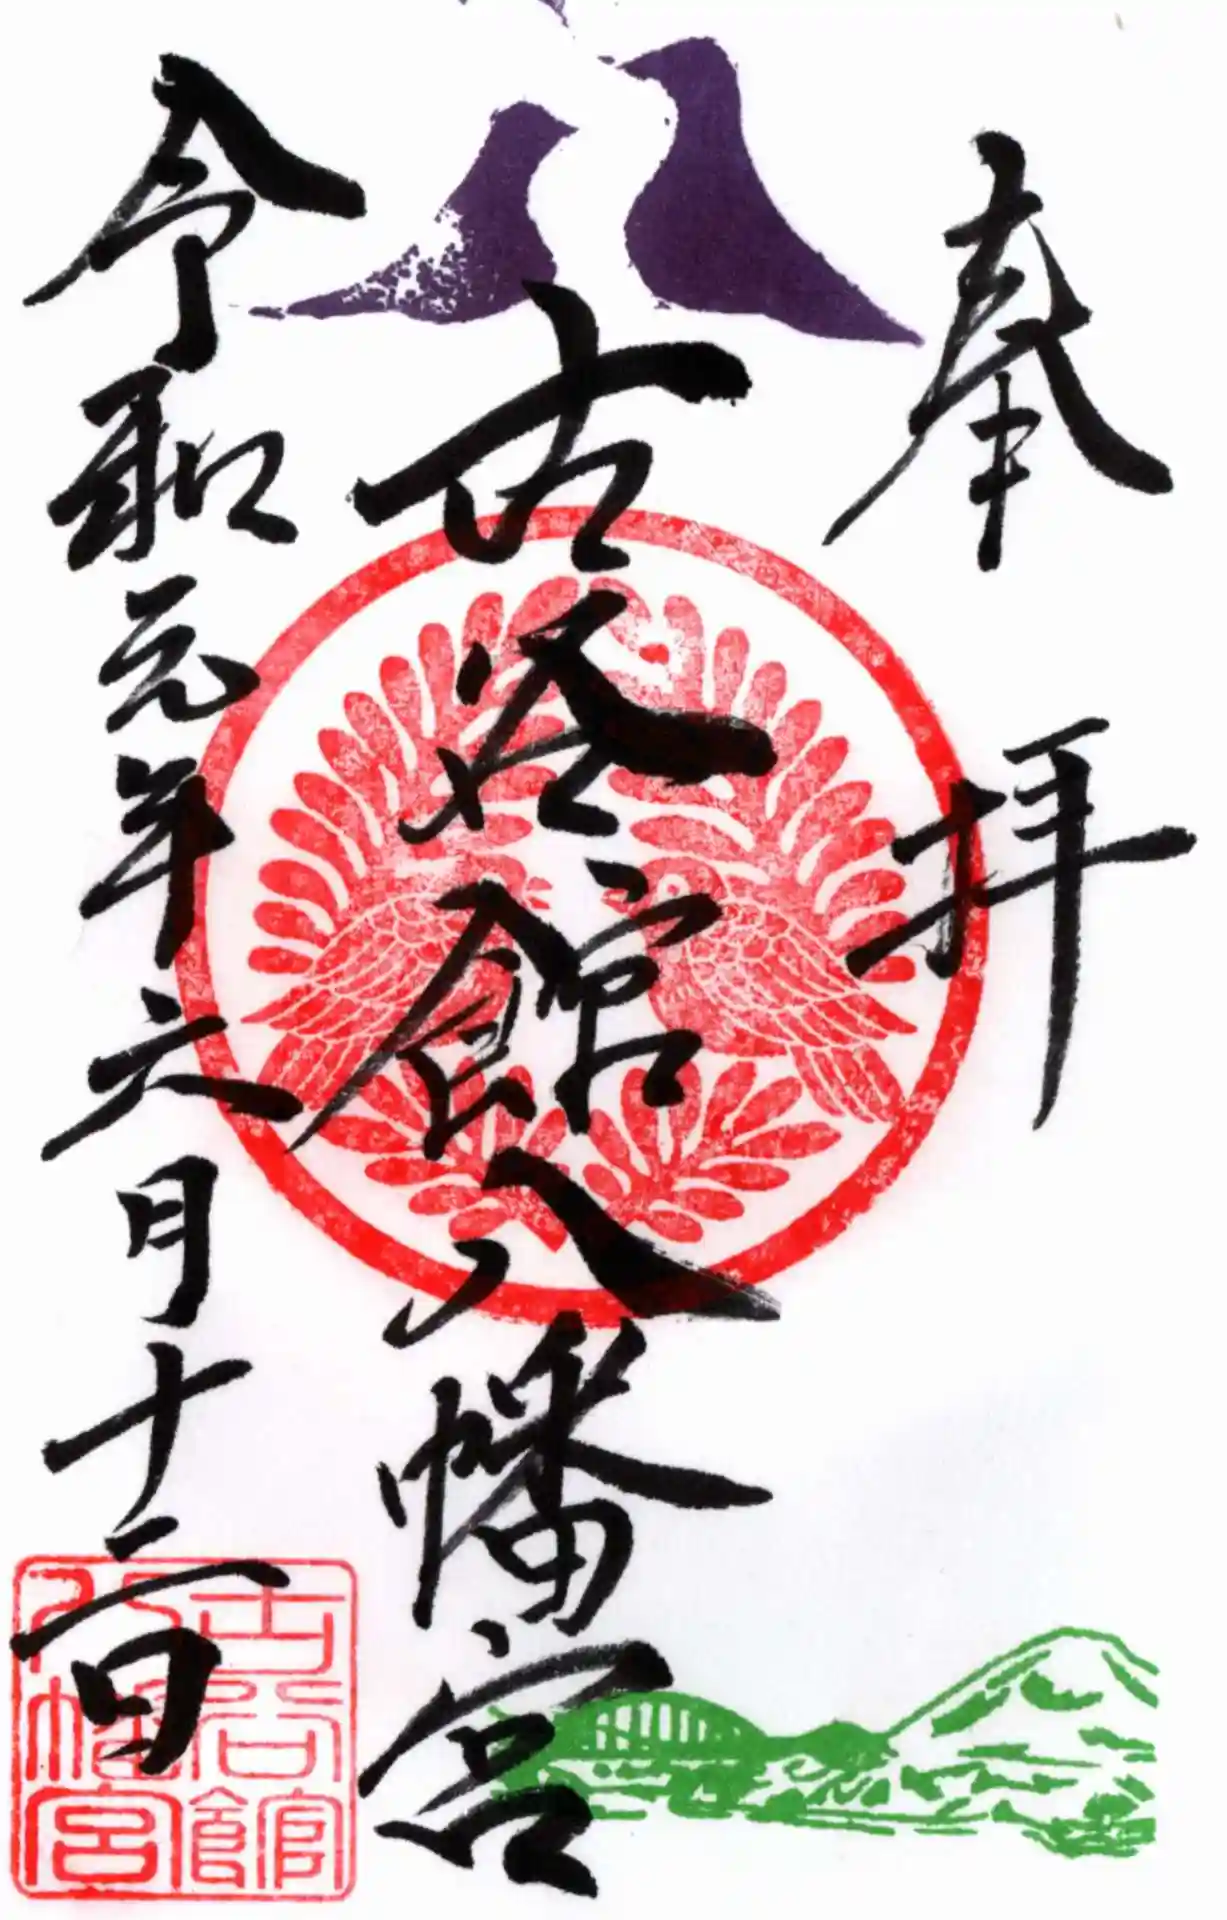 奉拝
古谷館八幡宮
令和元年六月十二日
古谷館
八幡宮